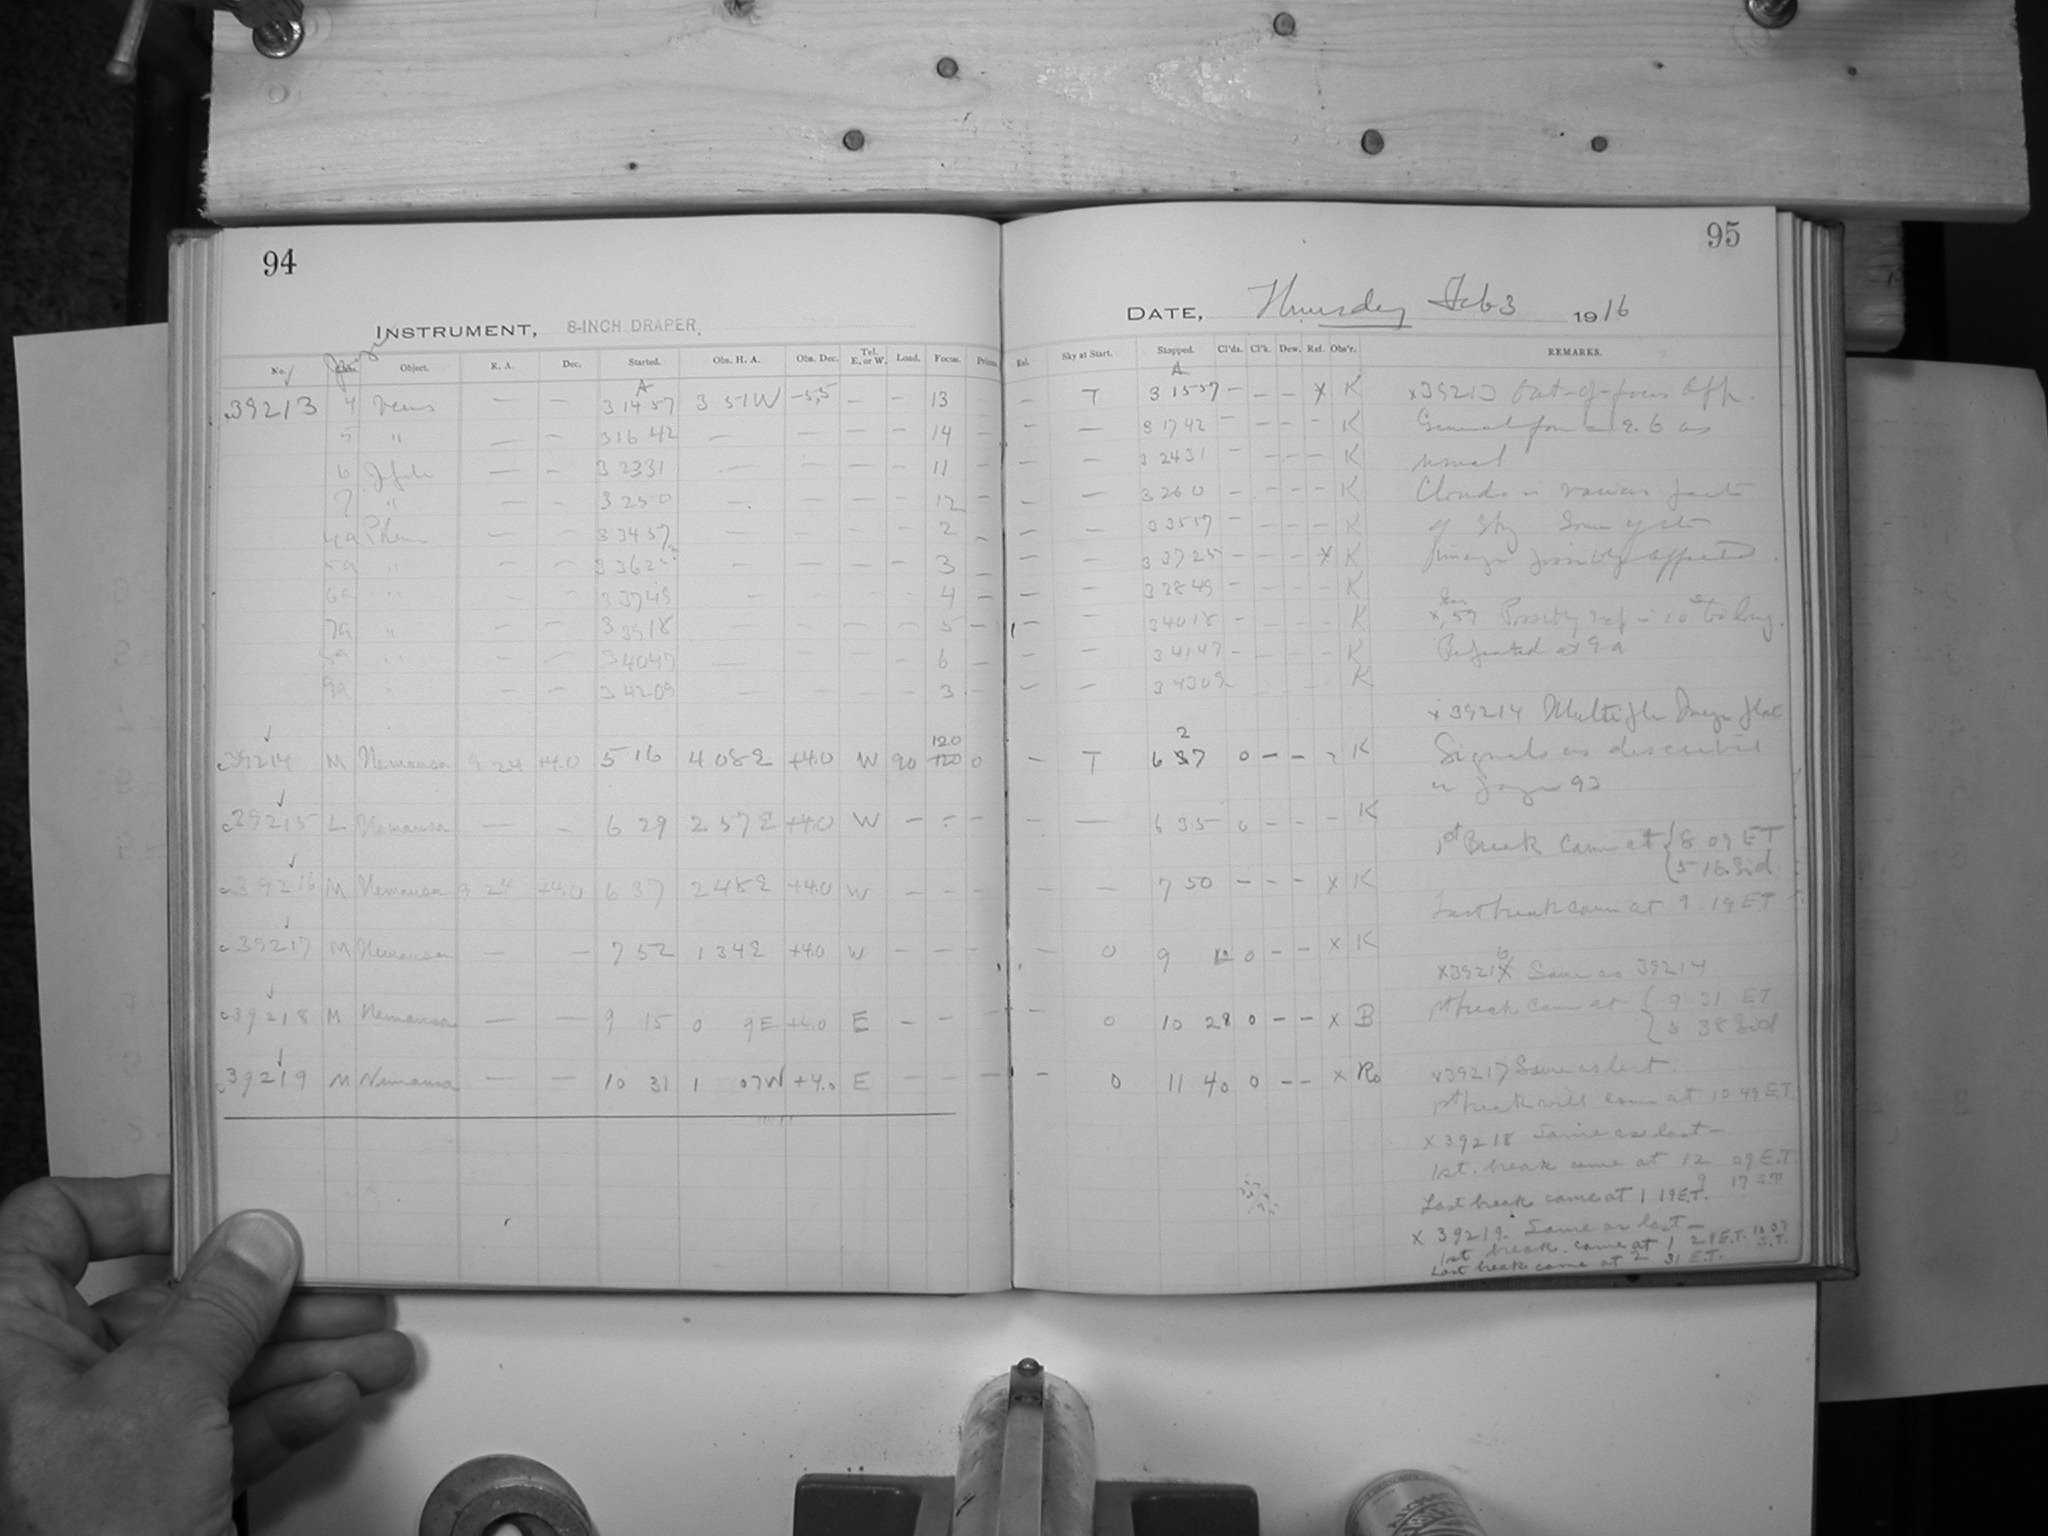 94
INSTRUMENT, 8-INCH DRAPER.
No. Object. R. A. Dec. Started. Obs. H. A. Obs. Dec. Tel. E. or W. Load. Focus. Prism.
A
39213 4 Venus — — 3 14 57 3 51W -5,5 — — 13
5 " — — 3 16 42 — — — — 14 —
6 — — 3 23 31 — — — — 11 —
7 " — — 3 25 0 — — — — 12 —
— — 3 34 57 — — — — 2 —
" — — 3 — — — — 3 —
" — — 3 37 49 — — — — 4 —
7a " — — 3 39 18 — — — — 5 —
— — 3 40 47 — — — — 6 —
9a — — 3 42 09 — — — — 3 —
39214 M Nemausa 9 24 +4.0 5 16 4 08E +4.0 W 90 12.0 0
39215 L Nemausa — — 6 29 2 57E +4.0 W — — —
39216 M Nemausa 9 24 +4.0 6 37 2 48E +4.0 W — — —
39217 M Nemausa — — 7 52 1 34E +4.0 W — — —
39218 M Nemausa — — 9 15 0 9E +4.0 E — — —
39219 M Nemausa — — 10 31 1 07W +4.0 E — — —
95
DATE, Thursday Feb 3 1916
Exl. Sky at Start. Stopped. Cl'ds. Cl'k. Dew. Ref. Obs'r. REMARKS.
A
— T 3 15 57 — — — x K
— — 3 17 42 — — — — K
— — 3 24 31 — — — — K
— — 3 26 0 — — — — K
— — 3 35 57 — — — — K
— — 3 37 25 — — — x K
— — 3 38 49 — — — — K
— — 3 40 18 — — — — K
— — 3 41 47 — — — — K
— — 3 43 09 K
2
— T 6 37 0 — — K
— — 6 35 0 — — — K
— — 7 50 — — — x K
— 0 9 12 0 — — x K
— 0 10 28 0 — — x B
— 0 11 40 0 — — x Ro
x39213 Out-of-focus
as
usual
Clouds in various parts
of sky Some of the
images possibly affected.
Possibly 10s too long.
Repeated at 9a
x39214 Multiple Image plate
Signals as described
on page 93
1st Break came at { 8 09 ET
{ 5 16 Sid.
Last break came at 9 19 ET
x39216 Same as 39214
1st break came at { 9 31 ET
{ 6 38 Sid
x39217 Same as last.
1st break will come at 10 49 E.T.
x 39218 Same as last —
1st. break came at 12 09 E.T.
9 17 S.T.
Last break came at 1 19 E.T.
x 39219. Same as last —
1st break came at 1 29 E.T. S.T.
Last break came at 2 31 E.T.